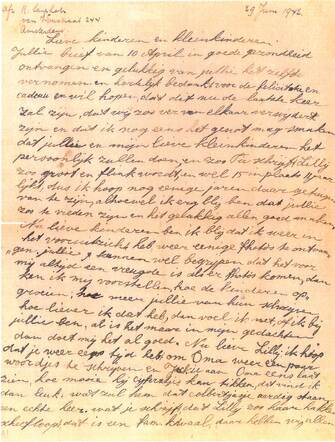 afz. R.
van 244
Amsterdam
29 Juni 1942.
Lieve kinderen en kleinkinderen.
Jullie brief van 10 April in goede gezondheid
ontvangen en gelukkig van jullie het zelfde
vernomen en hartelijk bedankt voor de felicitatie en
cadeau en wil hopen, dat dit nu de laatste keer
zal zijn, dat wij zoo ver van elkaar verwijderd
zijn en dat ik nog eens het genot mag smaken
dat jullie en mijn lieve kleinkinderen het
persoonlijk zullen doen, en zoo Pa schrijft, Lilly
zoo groot en flink wordt, en wel 15 in plaats 11 jaar
lijkt, dus ik hoop nog eenige jaren daar getuige
van te zijn, alhoewel ik erg blij ben dat jullie
zoo te vreden zijn en het gelukkig allen goed maken
Nu lieve kinderen ben ik blij dat ik weer in
het vooruitzicht heb weer eenige photo's te ontvan
gen, jullie kunnen wel begrijpen dat het voor
mij altijd een vreugde is als er photo's komen, dan
kan ik mij voorstellen, hoe de kinderen op
groeien, hoe meer jullie van hun schrijven
hoe liever ik het heb, dan voel ik net, of ik bij
jullie ben, al is het maar in mijn gedachten
dan doet mij het al goed. Nu lieve Lilly, ik hoop
dat je weer eens tijd heb om Oma weer een paar
woordjes te schrijven en Oma eens laat
zien, hoe mooi hij cyfertjes kan tikken, dat vind ik
dan leuk. wat zul hem dat colbertjasje aardig staan
een echte heer, wat je schrijft, dat Lilly zoo haar hakken
scheef loopt, dat is een familiekwaal, daar hebben wij alle